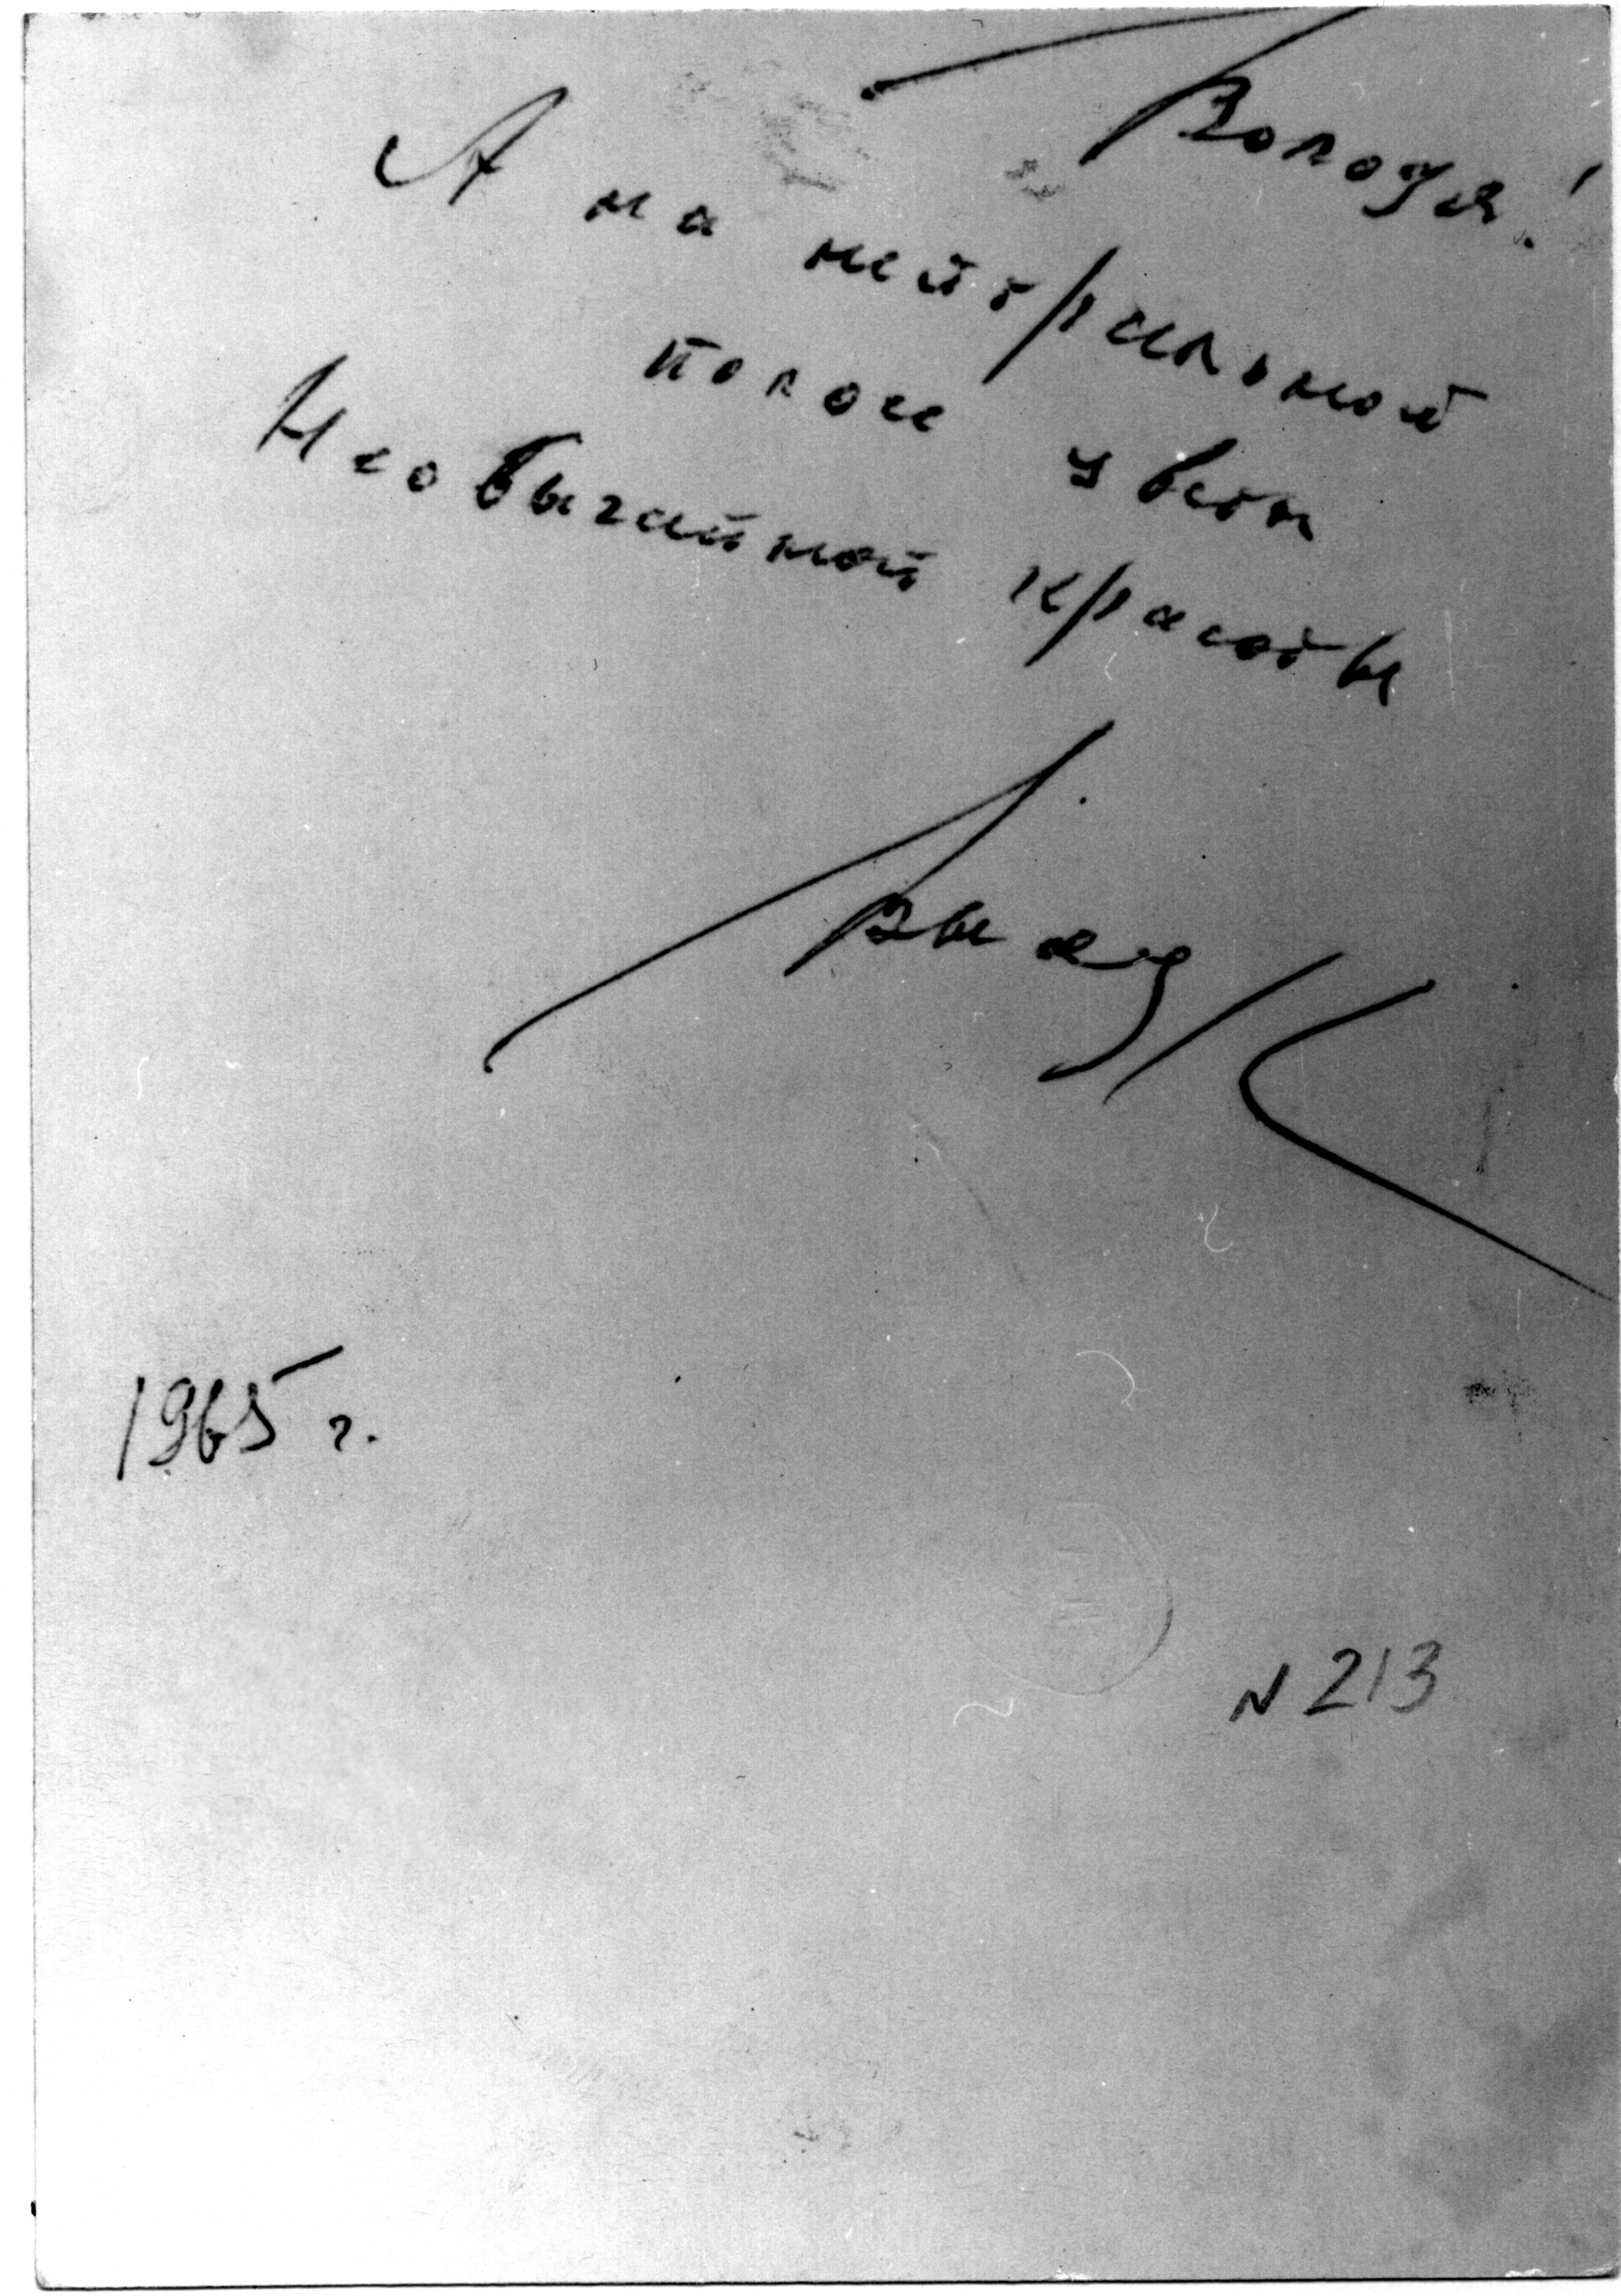 Володя!
А на нейтральной
полосе цветы
Необычайной красоты
1965 г.
N 213